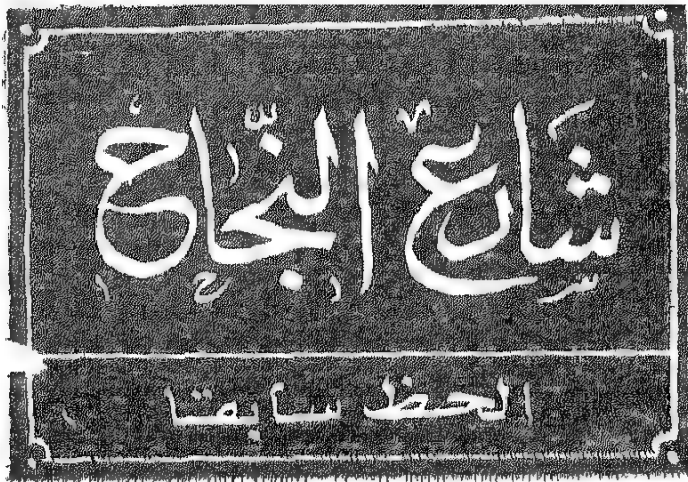 شارع النجاح
الحظ سابقا